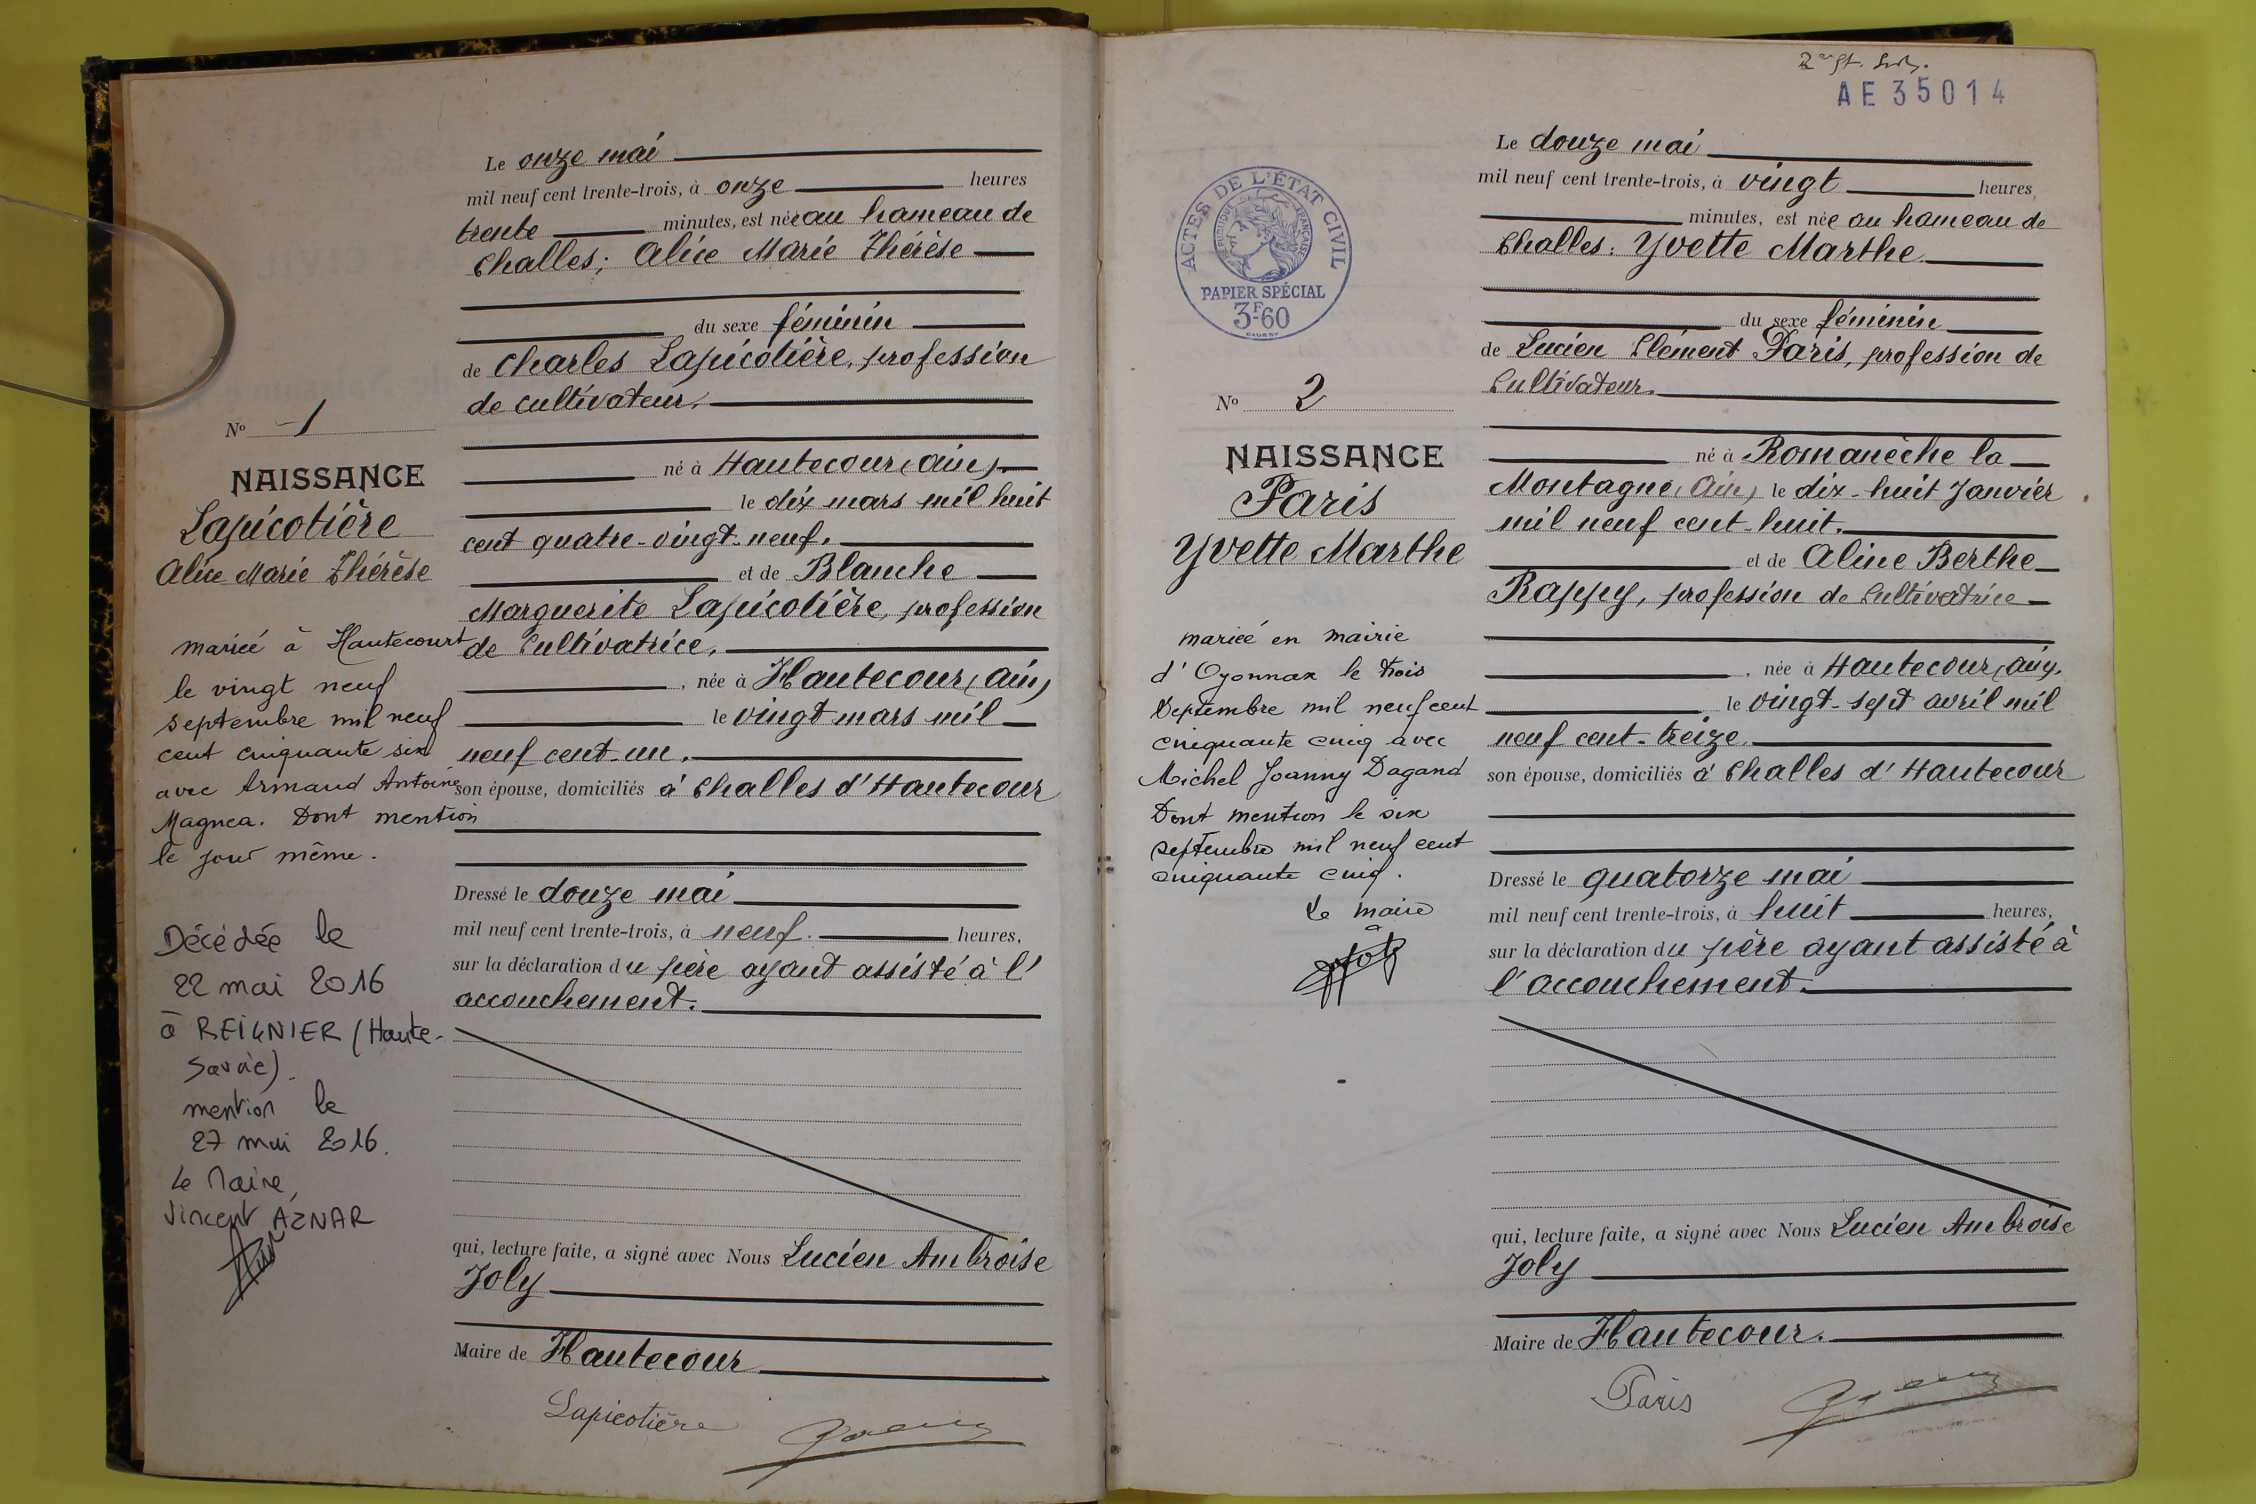 Le onze mai
mil neuf cent trente-trois, à onze heures
trente minutes, est née au hameau de
Challes; Alice Marie Thérèse
du sexe féminin
de Charles Lapicotière, profession
de cultivateur.
né à Hautecour (Ain).
le dix mars mil huit
cent quatre-vingt-neuf.
et de Blanche
Marguerite Lapicotière, profession
de Cultivatrice,
, née à Hautecour (Ain)
le vingt mars mil
neuf cent-un.
son épouse, domiciliés à Challes d'Hautecour
Dressé le douze mai
mil neuf cent trente-trois, à neuf. heures,
sur la déclaration du père ayant assisté à l'
accouchement.
qui, lecture faite, a signé avec Nous Lucien Ambroise
Joly
Maire de Hautecour
Lapicotière
No 1
NAISSANCE
Lapicotière
Alice Marie Thérèse
mariée à Hautecourt
le vingt neuf
septembre mil neuf
cent cinquante six
avec Armand Antoine
Magnea. Dont mention
le jour même.
Décédée le
22 mai 2016
à REIGNIER (Haute-
Savoie).
mention le
27 mai 2016.
Le Maire,
Vincent AZNAR
AE 35014
ACTES DE L'ÉTAT CIVIL
RÉPUBLIQUE FRANÇAISE
PAPIER SPÉCIAL
3F60
No 2
NAISSANCE
Paris
Yvette Marthe
mariée en mairie
d'Oyonnax le trois
Septembre mil neuf cent
cinquante cinq avec
Michel Joanny Dagand
Dont mention le six
septembre mil neuf cent
cinquante cinq.
Le maire
Le douze mai
mil neuf cent trente-trois, à vingt heures,
minutes, est née au hameau de
Challes: Yvette Marthe
du sexe féminin
de Lucien Clément Paris, profession de
Cultivateur.
né à Romanèche la
Montagne (Ain) le dix-huit Janvier
mil neuf cent-huit.
et de Aline Berthe
Rappy, profession de Cultivatrice
, née à Hautecour (Ain).
le vingt-sept avril mil
neuf cent-treize.
son épouse, domiciliés à Challes d'Hautecour
Dressé le quatorze mai
mil neuf cent trente-trois, à huit heures,
sur la déclaration du père ayant assisté à
l'accouchement.
qui, lecture faite, a signé avec Nous Lucien Ambroise
Joly
Maire de Hautecour.
Paris